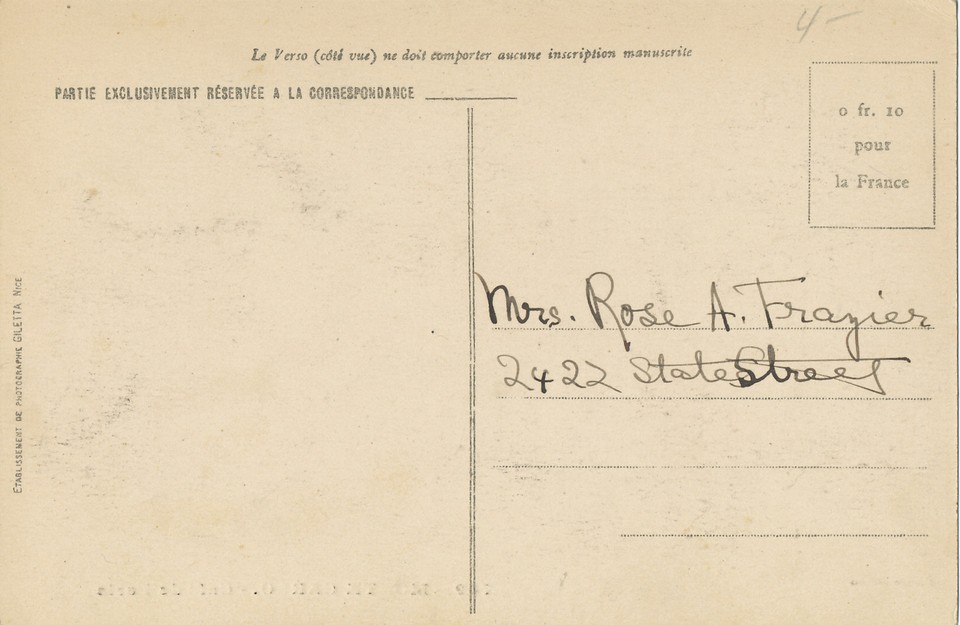 4–
Le Verso (côté vue) ne doit comporter aucune inscription manuscrite
PARTIE EXCLUSIVEMENT RÉSERVÉE A LA CORRESPONDANCE
0 fr. 10
pour
la France
Mrs. Rose A. Frazier
2422 State Street
ETABLISSEMENT DE PHOTOGRAPHIE GILETTA NICE